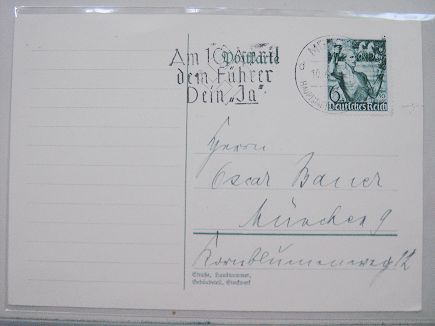 Am 10. April
dem Führer
Dein „Ja“
Postkarte
6
Deutsches Reich
Herrn
Oscar Bauer
München 9
Kornblumenweg 12
Straße, Hausnummer,
Gebäudeteil, Stockwerk